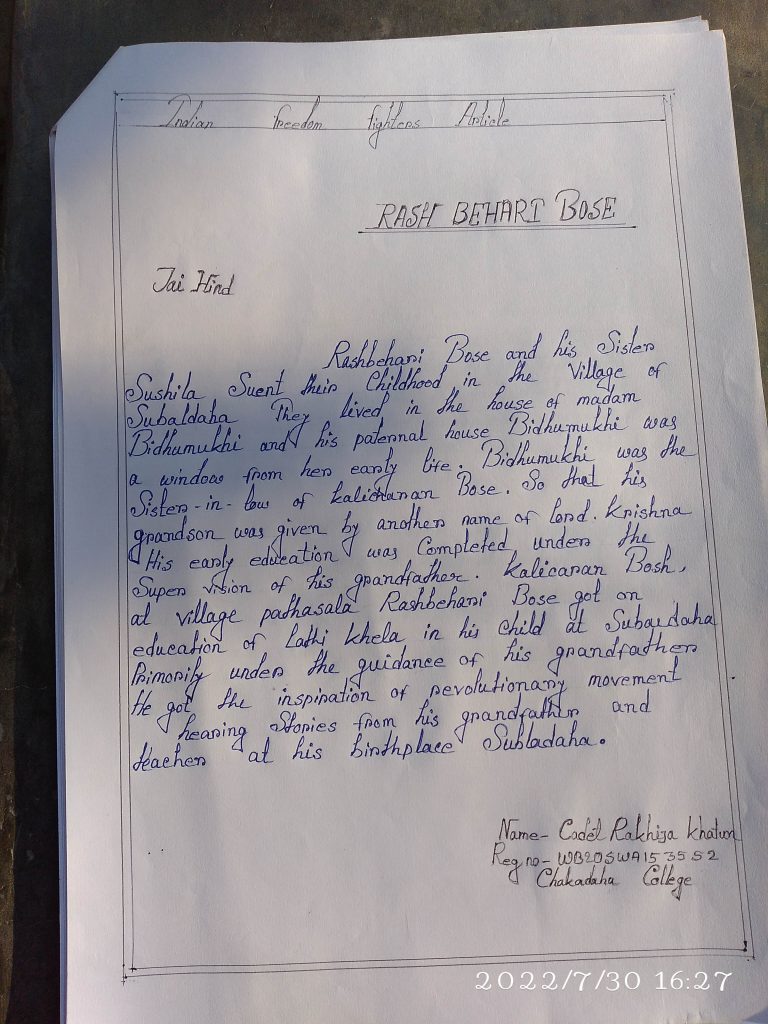 Indian freedom fighters Article
RASH BEHARI BOSE
Jai Hind
Rashbehari Bose and his Sister
Sushila Suent their Childhood in the Village of
Subaldaha They lived in the house of madam
Bidhumukhi and his paternal house Bidhumukhi was
a window from her early life. Bidhumukhi was the
Sister-in-law of kalicharan Bose. So that his
grandson was given by another name of lord. Krishna
His early education was Completed under the
Super vision of his grandfather. Kalicaran Bosh,
at village pathasala Rashbehari Bose got on
education of Lathi khela in his child at Subaldaha
Primorily under the guidance of his grandfather
He got the inspiration of revolutionary movement
hearing Stories from his grandfather and
teacher at his birthplace Subladaha.
Name- Cadet Rakhija khatun
Reg no- WB20SWA153552
Chakadaha College
2022/7/30 16:27